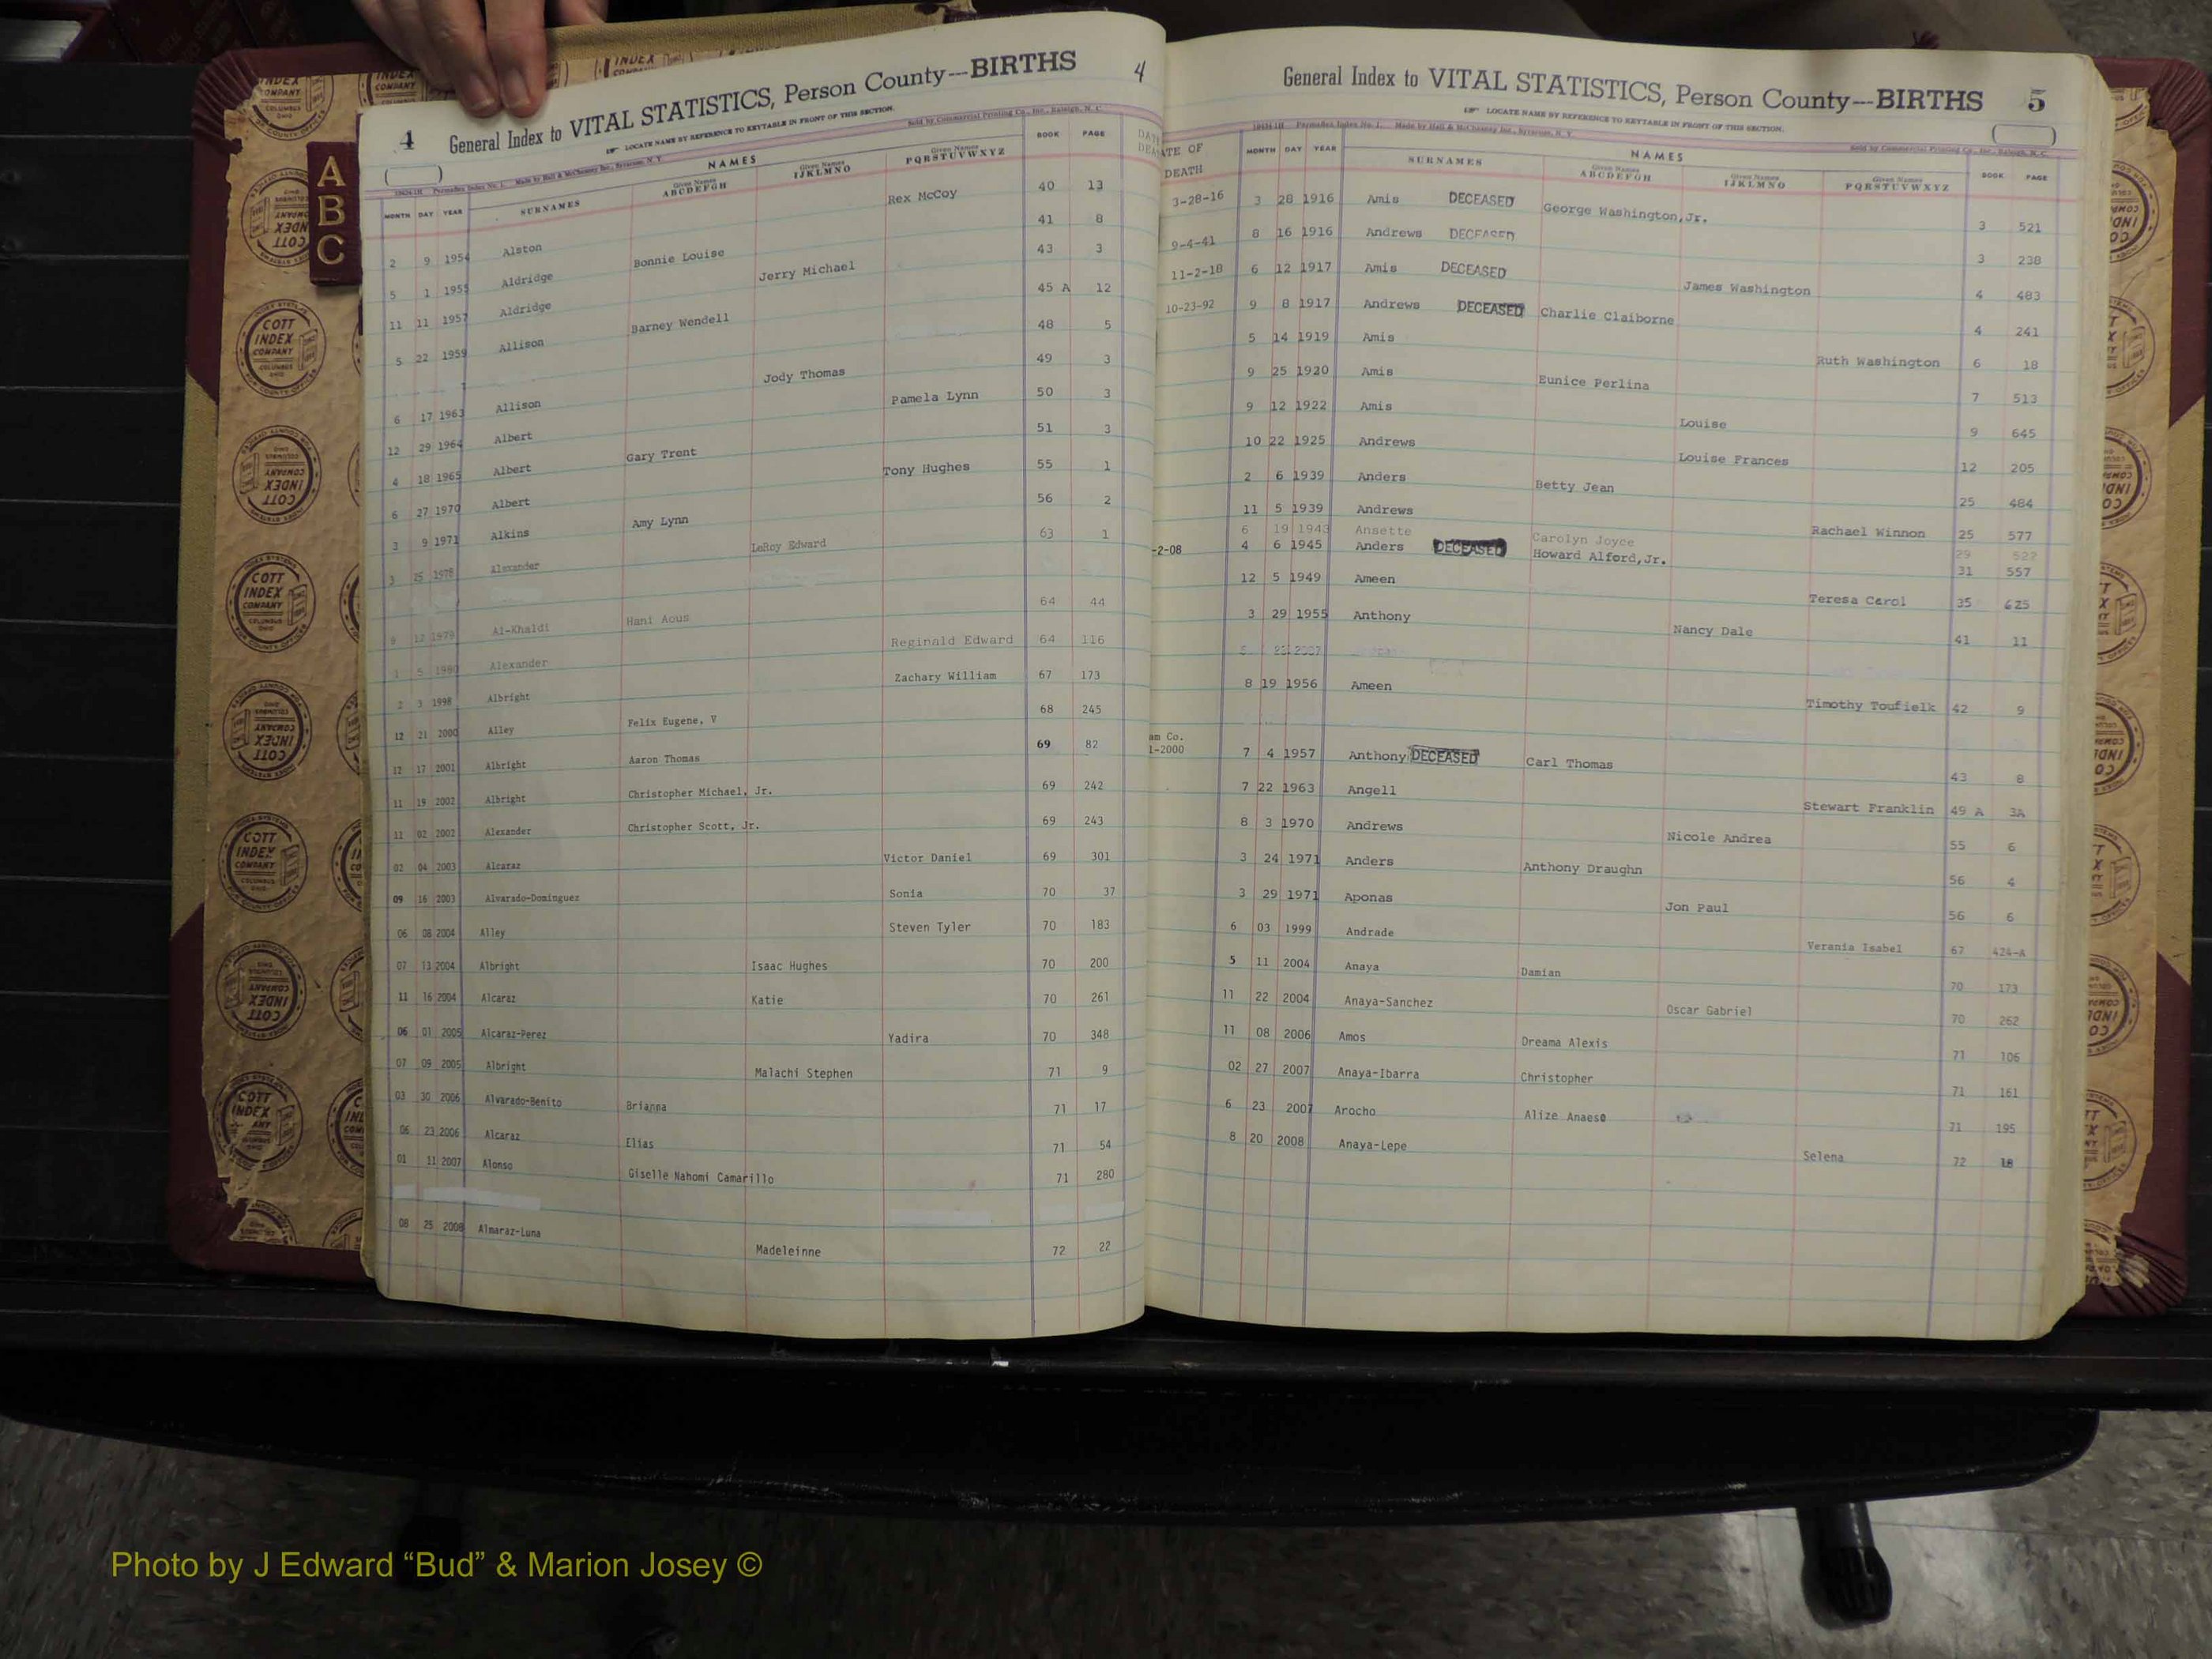 4 General Index to VITAL STATISTICS, Person County---BIRTHS 4
LOCATE NAME BY REFERENCE TO KEYTABLE IN FRONT OF THIS SECTION.
Sold by Commercial Printing Co., Inc., Raleigh, N. C.
NAMES
MONTH DAY YEAR SURNAMES Given Names ABCDEFGH Given Names IJKLMNO Given Names PQRSTUVWXYZ BOOK PAGE
2 9 1954 Alston Rex McCoy 40 13
5 1 1955 Aldridge Bonnie Louise 41 8
11 11 1957 Aldridge Jerry Michael 43 3
5 22 1959 Allison Barney Wendell 45 A 12
6 17 1963 Allison Jody Thomas 48 5
12 29 1964 Albert Pamela Lynn 49 3
4 18 1965 Albert Gary Trent 50 3
6 27 1970 Albert Tony Hughes 51 3
3 9 1971 Alkins Amy Lynn 55 1
3 25 1978 Alexander LeRoy Edward 56 2
63 1
9 12 1979 Al-Khaldi Hani Aous 64 44
1 5 1980 Alexander Reginald Edward 64 116
2 3 1998 Albright Zachary William 67 173
12 21 2000 Alley Felix Eugene, V 68 245
12 17 2001 Albright Aaron Thomas 69 82
11 19 2002 Albright Christopher Michael, Jr. 69 242
11 02 2002 Alexander Christopher Scott, Jr. 69 243
02 04 2003 Alcaraz Victor Daniel 69 301
09 16 2003 Alvarado-Dominguez Sonia 70 37
06 08 2004 Alley Steven Tyler 70 183
07 13 2004 Albright Isaac Hughes 70 200
11 16 2004 Alcaraz Katie 70 261
06 01 2005 Alcaraz-Perez Yadira 70 348
07 09 2005 Albright Malachi Stephen 71 9
03 30 2006 Alvarado-Benito Brianna 71 17
06 23 2006 Alcaraz Elias 71 54
01 11 2007 Alonso Giselle Nahomi Camarillo 71 280
08 25 2008 Almaraz-Luna Madeleinne 72 22
General Index to VITAL STATISTICS, Person County---BIRTHS 5
LOCATE NAME BY REFERENCE TO KEYTABLE IN FRONT OF THIS SECTION.
Sold by Commercial Printing Co., Inc., Raleigh, N. C.
NAMES
ATE OF DEATH MONTH DAY YEAR SURNAMES Given Names ABCDEFGH Given Names IJKLMNO Given Names PQRSTUVWXYZ BOOK PAGE
3-28-16 3 28 1916 Amis DECEASED George Washington,Jr. 3 521
9-4-41 8 16 1916 Andrews DECEASED 3 238
11-2-18 6 12 1917 Amis DECEASED James Washington 4 483
10-23-92 9 8 1917 Andrews DECEASED Charlie Claiborne 4 241
5 14 1919 Amis Ruth Washington 6 18
9 25 1920 Amis Eunice Perlina 7 513
9 12 1922 Amis Louise 9 645
10 22 1925 Andrews Louise Frances 12 205
2 6 1939 Anders Betty Jean 25 484
11 5 1939 Andrews Rachael Winnon 25 577
6 19 1943 Ansette Carolyn Joyce 29 522
-2-08 4 6 1945 Anders DECEASED Howard Alford,Jr. 31 557
12 5 1949 Ameen Teresa Carol 35 625
3 29 1955 Anthony Nancy Dale 41 11
8 19 1956 Ameen Timothy Toufielk 42 9
am Co.
1-2000 7 4 1957 Anthony DECEASED Carl Thomas 43 8
7 22 1963 Angell Stewart Franklin 49 A 3A
8 3 1970 Andrews Nicole Andrea 55 6
3 24 1971 Anders Anthony Draughn 56 4
3 29 1971 Aponas Jon Paul 56 6
6 03 1999 Andrade Verania Isabel 67 424-A
5 11 2004 Anaya Damian 70 173
11 22 2004 Anaya-Sanchez Oscar Gabriel 70 262
11 08 2006 Amos Dreama Alexis 71 106
02 27 2007 Anaya-Ibarra Christopher 71 161
6 23 2007 Arocho Alize Anaese 71 195
8 20 2008 Anaya-Lepe Selena 72 18
A
B
C
COTT INDEX COMPANY COLUMBUS OHIO
Photo by J Edward “Bud” & Marion Josey ©